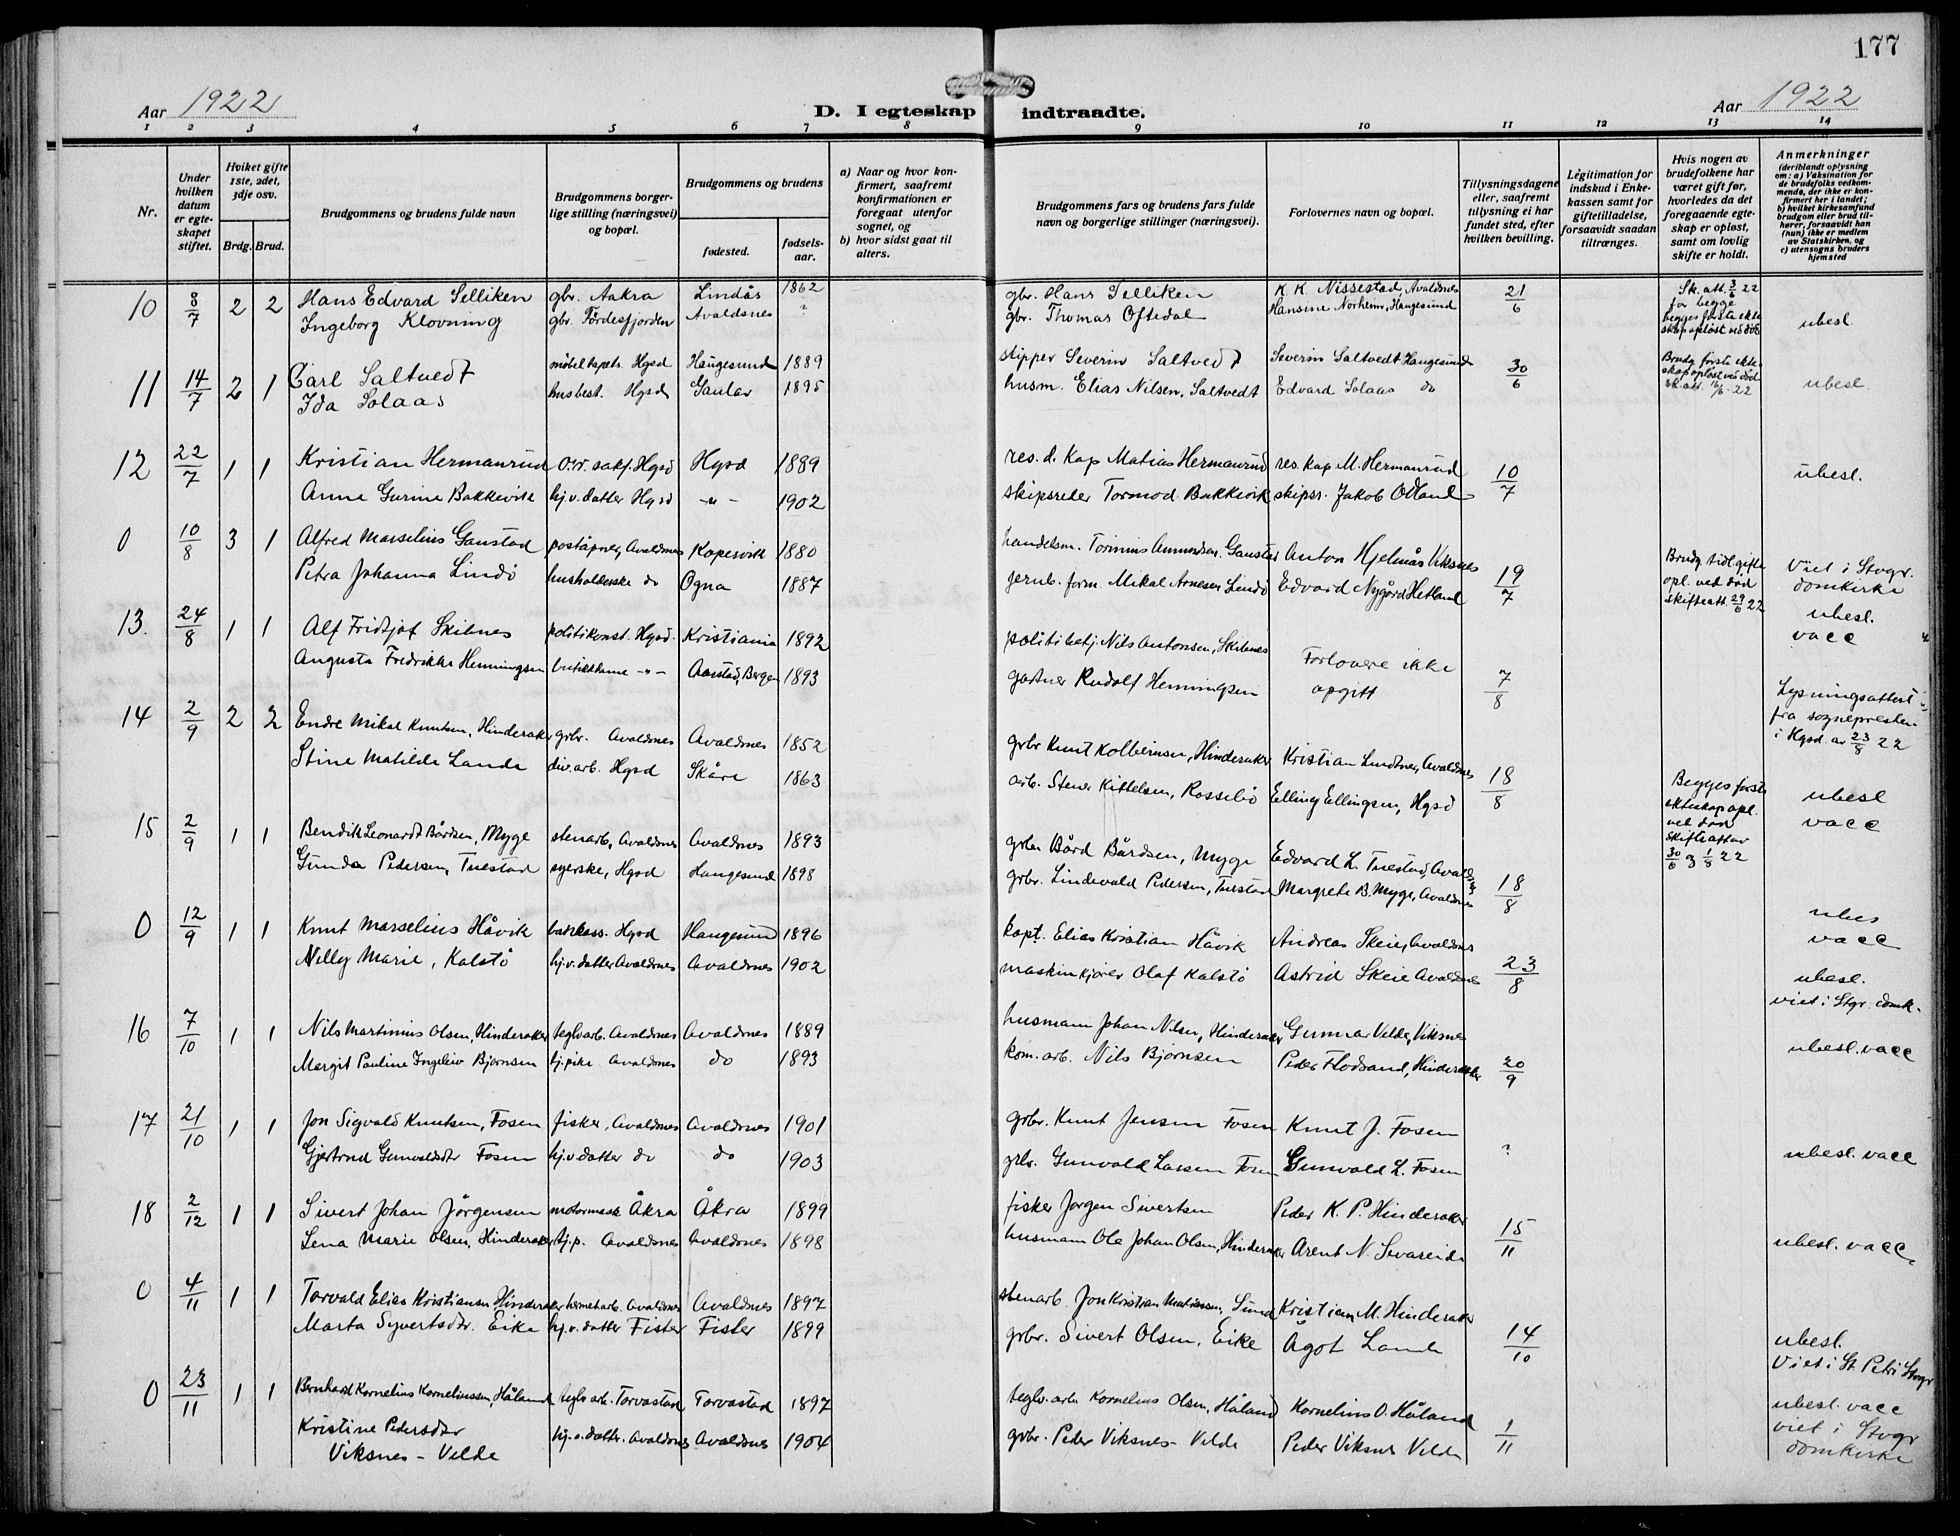 177
Aar 1922
D. I egteskap indtraadte.
Aar 1922
1 2 3 4 5 6 7 8 9 10 11 12 13 14
Nr.
Under hvilken datum er egteskapet stiftet.
Hviket gifte 1ste, 2det, 3dje osv.
Brdg. Brud.
Brudgommens og brudens fulde navn
Brudgommens borgerlige stilling (næringsvei) og bopæl.
Brudgommens og brudens
fødested.
fødselsaar.
a) Naar og hvor konfirmert, saafremt konfirmationen er foregaat utenfor sognet, og
b) hvor sidst gaat til alters.
Brudgommens fars og brudens fars fulde navn og borgerlige stillinger (næringsvei).
Forlovernes navn og bopæl.
Tillysningsdagene eller, saafremt tillysning ei har fundet sted, efter hvilken bevilling.
Legitimation for indskud i Enkekassen samt for giftetilladelse, forsaavidt saadan tiltrænges.
Hvis nogen av brudefolkene har været gift før, hvorledes da det foregaaende egteskap er opløst, samt om lovlig skifte er holdt.
Anmerkninger (deriblandt oplysning om: a) Vaksination for de brudefolks vedkommende, der ikke er konfirmert her i landet; b) hvilket kirkesamfund brudgom eller brud tilhører, forsaavidt han (hun) ikke er medlem av Statskirken, og c) utensogns bruders hjemsted
10 8/7 2 2 Hans Edvard Selliken gbr. Aakra Lindås 1862 gbr. Hans Selliken K K Nissestad, Avaldsnes 21/6 Sk. att. 3/6 22 for begge
Ingeborg Klovning gbr. Førdesfjorden Avaldsnes ? gbr. Thomas Oftedal Hansine Norheim, Haugesund begges første ekteskap opløst ved død ubesl.
11 14/7 2 1 Carl Saltvedt møbeltapets. Hgsd Haugesund 1889 skipper Severin Saltvedt Severin Saltvedt Haugesund 30/6 Brudg. første ekteskap opløst ved død
Ida Solaas husbest. Hgsd Gaular 1895 husm. Elias Nilsen, Saltvedt Edvard Solaas do sk. att. 16/6-22 ubesl.
12 22/7 1 1 Kristian Hermanrud o.r. sakf. Hgsd Hgsd 1889 res. d. kap Matias Hermanrud res. kap M. Hermanrud 10/7 ubesl.
Anna Gurine Bakkevik hj.v. datter Hgsd -"- 1902 skipsreder Tormod Bakkevik skipsr. Jakob Odland
0 10/8 3 1 Alfred Marselius Gaustad poståpner, Avaldsnes Kopervik 1880 handelsm. Torinius Amundsen Gaustad Anton Hjelmås Viksnes 19/7 Brudg tidl. gifte opl. ved død Viet i Stvgr. domkirke
Petra Johanna Lindø husholderske do Ogna 1887 jernb. form. Mikal Arnesen Lindø Edvard Nygård Hetland skifteatt. 29/6 22 ubesl.
13. 24/8 1 1 Alf Fridtjof Skibnes politikonst. Hgsd. Kristiania 1892 politibetj. Nils Antonsen, Skibnes Forlovere ikke 7/8 vacc
Augusta Fredrikke Henningsen butikkdame -"- Aarstad, Bergen 1893 gartner Rudolf Henningsen opgitt Lysningsattest fra sognepresten i Hgsd. av 23/8 22
14 2/9 2 2 Endre Mikal Knutsen, Hinderaker grbr. Avaldsnes Avaldsnes 1852 grbr Knut Kolbeinsen, Hinderaker Kristian Lindtner, Avaldsnes 18/8 Begges første ekteskap opl. ved død ubesl
Stine Matilde Lande div. arb. Hgsd Skåre 1863 arb. Stener Kittelsen, Rossebø Elling Ellingsen, Hgsd skifteatt av 30/6 og 1/8 22 vacc
15 2/9 1 1 Bendik Leonard Bårdsen, Myge stenarb, Avaldsnes Avaldsnes 1893 grbr Bård Bårdsen, Myge Edvard L. Tuestad, Avaldsnes 18/8
Gunda Pedersen, Tuestad syerske, Hgsd Haugesund 1898 grbr. Lindevald Pedersen, Tuestad Margrete B. Myge, Avaldsnes ubes vacc
0 12/9 1 1 Knut Marselius Håvik bakkass. Hgsd Haugesund 1896 kapt. Elias Kristian Håvik Andreas Skeie, Avaldsnes 23/8
Nelly Marie, Kalstø hj.v. datter Avaldsnes Avaldsnes 1902 maskinkjører Olaf Kalstø Astrid Skeie Avaldsnes ubesl. viet i Stgr. domk.
16 7/10 1 1 Nils Martinius Olsen, Hinderaker teglv.arb. Avaldsnes Avaldsnes 1889 husmann Johan Nilsen, Hinderaker Gunnar Velde, Viksnes 20/9 ubesl. vacc
Margit Pauline Ingeleiv Bjørnsen hj. pike Avaldsnes do 1893 kom. arb. Nils Bjørnsen Peder Flodsand, Hinderaker
17 21/10 1 1 Jon Sigvald Knutsen, Fosen fisker, Avaldsnes Avaldsnes 1901 grbr. Knut Jensen Fosen Knut J. Fosen ?
Gjertrud Gunvaldsdtr Fosen hj.v. datter do do 1903 grbr. Gunvald Larsen Fosen Gunvald L. Fosen ubesl. vacc
18 2/12 1 1 Sivert Johan Jörgensen motormask Åkra Åkra 1899 fisker Jørgen Sivertsen Peder K. P. Hinderaker 15/11
Lena Marie Olsen, Hinderaker hj.p. Avaldsnes Avaldsnes 1898 husmann Ole Johan Olsen, Hinderaker Arent N. Sevareide ubesl. vacc.
0 4/11 1 1 Torvald Elias Kristiansen Hinderaker hermet.arb. Avaldsnes Avaldsnes 1897 stenarb. Jon Kristian Matiassen, Sund Kristian M. Hinderaker 14/10
Marta Syvertsdtr. Eike hj.v. datter Fister Fister 1899 grbr. Sivert Olsen, Eike Ågot Lande ubesl. Viet i St. Petri Stvgr
0 23/11 1 1 Bernhard Kornelius Korneliussen, Håland teglv.arb. Torvastad Torvastad 1897 teglv. arb Kornelius Olsen, Håland Kornelius O. Håland 1/11 ubesl. vacc
Kristine Pedersdtr Viksnes - Velde hj.v. datter. Avaldsnes Avaldsnes 1904 grbr. Peder Viksnes - Velde Peder Viksnes Velde viet i Stvgr domkirke